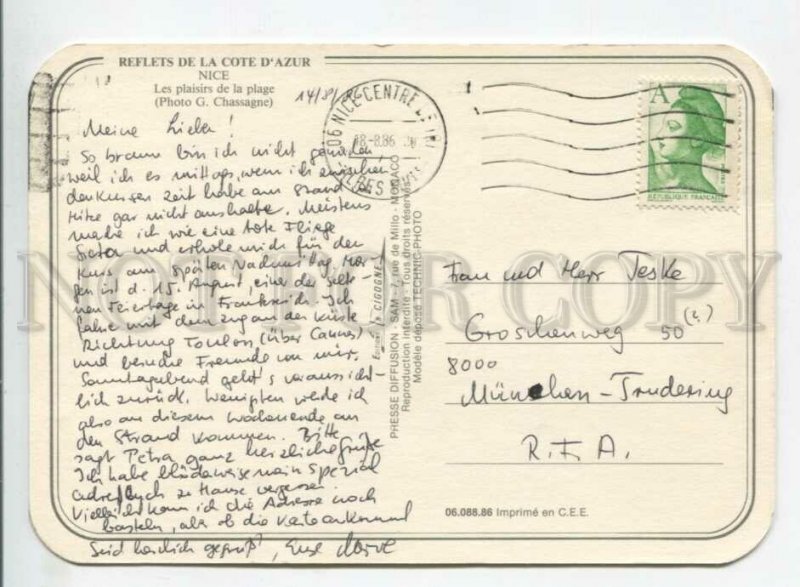 REFLETS DE LA COTE D'AZUR
NICE
Les plaisirs de la plage
(Photo G. Chassagne)
14/8/86
06 NICE CENTRE
18-8.86
A
REPUBLIQUE FRANCAISE
Meine Lieben!
So braun bin ich nicht geworden
weil ich es mittags, wenn ich zwischen
den Kursen Zeit habe am Strand
Hitze gar nicht aushalte. Meistens
mache ich wie eine tote Fliege
Siesta und erhole mich für den
Kurs am späten Nachmittag. Mor-
gen ist d. 15. August, einer der selte-
nen Feiertage in Frankreich. Ich
fahre mit dem Zug an der Küste
Richtung Toulon (über Cannes)
und besuche Freunde von mir.
Sonntagabend geht's voraussicht-
lich zurück. Wenigsten werde ich
also an diesem Wochenende an
den Strand kommen. Bitte
sagt Petra ganz herzliche Grüße
Ich habe blöderweise mein Spezial
adreßbuch zu Hause vergessen.
Vielleicht kann ich die Adresse noch
basteln, aber ob die Karte ankommt
Seid herzlich gegrüßt, Eure
Editions "la CIGOGNE"
PRESSE DIFFUSION - SAM - 7, rue de Millo - MONACO
Reproduction interdite - Tous droits réservés
Modèle déposé TECHNIC-PHOTO
Frau und Herr Jeske
Groschenweg 50 (?)
8000
München-Trudering
R.F.A.
06.088.86 Imprimé en C.E.E.
NOT FOR COPY